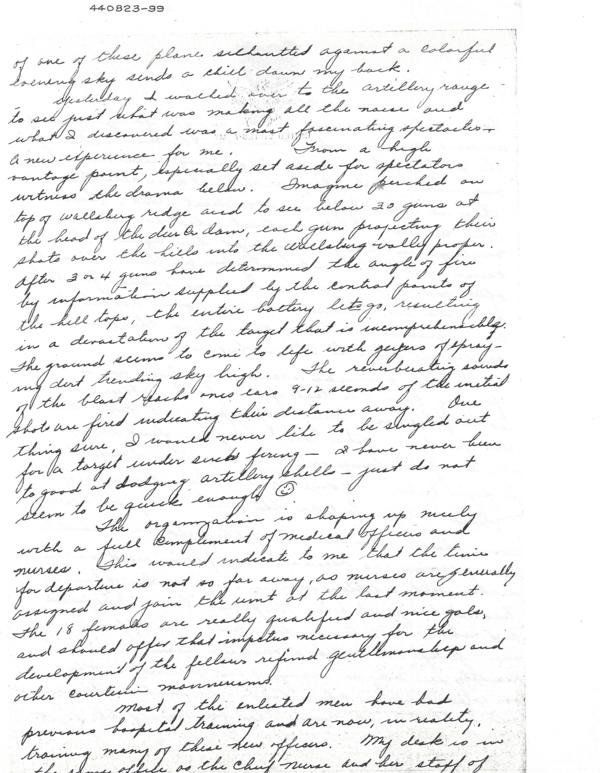 440823-99
of one of these plane silhoutted against a colorful
evening sky sends a chill down my back.
Yesterday I walked over to the artillery range
to see just what was making all the noise and
what I discovered was a most fascinating spectacles -
a new experience for me. From a high
vantage point, especially set aside for spectators
witness the drama below. Imagine perched on
top of Wallsburg ridge and to see below 20 guns at
the head of the deer Cr dam, each gun projecting their
shots over the hills into the Wallsburg valley proper.
After 3 or 4 guns have determined the angle of fire
by information supplied by the control points of
the hill tops, the entire battery lets go, resulting
in a devastation of the target that is incomprehensibly.
The ground seems to come to life with geysers of spray-
ing dirt trending sky high. The reverberating sounds
of the blast reachs ones ears 9-12 seconds of the initial
shots are fired indicating their distance away. One
thing sure, I would never like to be singled out
for a target under such firing - I have never been
to good at dodging artillery shells - just do not
seem to be quick enough ☺
The organization is shaping up nicely
with a full complement of medical officers and
nurses. This would indicate to me that the time
for departure is not so far away, as nurses are generally
assigned and join the unit at the last moment.
The 18 females are really qualified and nice gals,
and should offer that impetus necessary for the
development of the fellows refined gentlemanship and
other courteous mannerisms.
Most of the enlisted men have had
previous hospital training and are now, in reality,
training many of these new officers. My desk is in
the same office as the Chief Nurse and her staff of